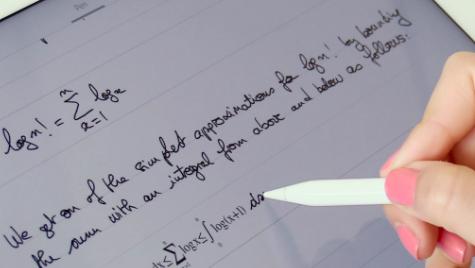 Pen
log n! = n∑x=1 log x
We get on of the simplest approximations for log n! by bounding
the sum with an integral from above and below as follows:
dx ≤ n∑ log x ≤ n∫ log(x+1) dx